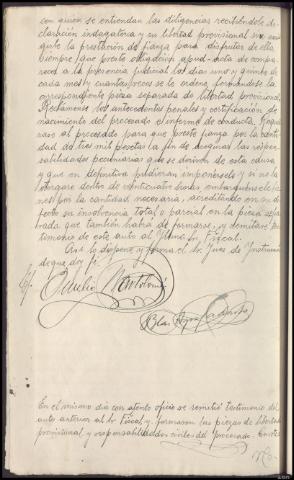 con quien se entiendan las diligencias recibiéndole de
claración indagatoria y en libertad provisional sin exi
girle la prestación de fianza para disfrutar de ella
siempre que preste obligación apud-acta de compa
recer a la presencia judicial los días uno y quince de
cada mes y cuantas veces se le ordene formándose la
correspondiente pieza separada de libertad provisional.
Reclámense los antecedentes penales y certificación de
nacimiento del procesado e informe de conducta. Requié
rase al procesado para que preste fianza por la canti
dad de tres mil pesetas a fin de asegurar las respon
sabilidades pecuniarias que se deriven de esta causa
y que en definitiva pudieran imponérsele y si no la
otorgare dentro de veinticuatro horas embárguensele bie
nes por la cantidad necesaria, acreditando en su de
fecto su insolvencia total o parcial en la pieza sepa
rada que también habrá de formarse, y remítase tes
timonio de este auto al Fiscal.
Así lo dispone y firma el Sr. Juez de Instrucción
de que doy fe.
En el mismo día con atento oficio se remitió testimonio del
auto anterior al Sr. Fiscal y formaron las piezas de libertad
provisional y responsabilidades civiles del procesado.